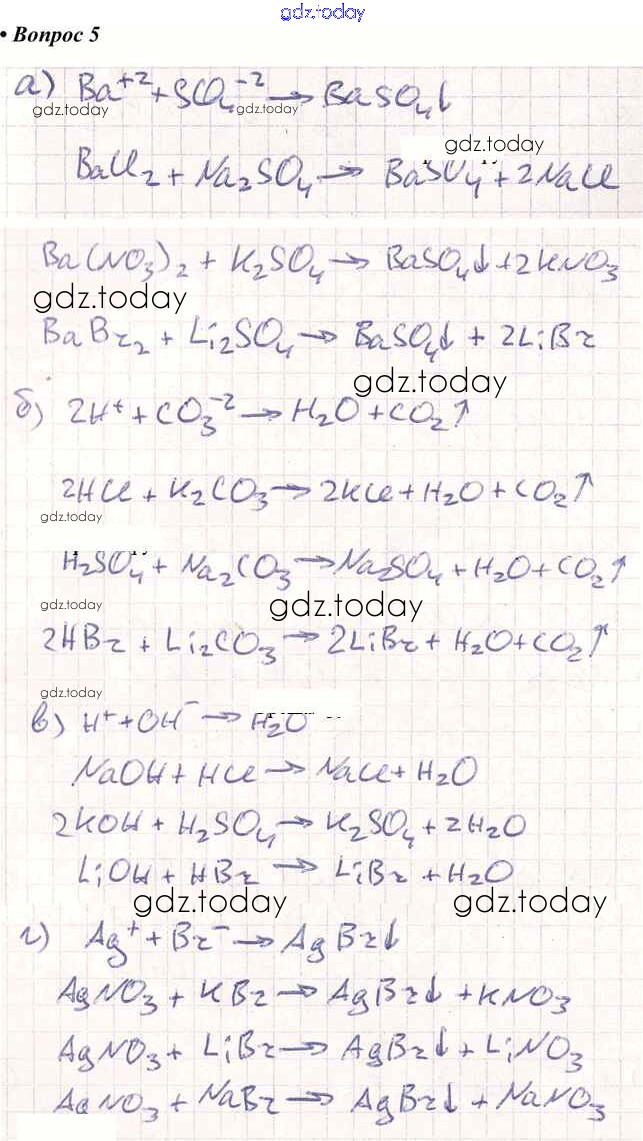 gdz.today
• Вопрос 5
а) Ba⁺² + SO₄⁻² → BaSO₄↓
gdz.today gdz.today
gdz.today
BaCl₂ + Na₂SO₄ → BaSO₄ + 2NaCl
Ba(NO₃)₂ + K₂SO₄ → BaSO₄↓ + 2KNO₃
gdz.today
BaBr₂ + Li₂SO₄ → BaSO₄↓ + 2LiBr
gdz.today
б) 2H⁺ + CO₃⁻² → H₂O + CO₂↑
2HCl + K₂CO₃ → 2KCl + H₂O + CO₂↑
gdz.today
H₂SO₄ + Na₂CO₃ → Na₂SO₄ + H₂O + CO₂↑
gdz.today gdz.today
2HBr + Li₂CO₃ → 2LiBr + H₂O + CO₂↑
gdz.today
в) H⁺ + OH⁻ → H₂O
NaOH + HCl → NaCl + H₂O
2KOH + H₂SO₄ → K₂SO₄ + 2H₂O
LiOH + HBr → LiBr + H₂O
gdz.today gdz.today
г) Ag⁺ + Br⁻ → AgBr↓
AgNO₃ + KBr → AgBr↓ + KNO₃
AgNO₃ + LiBr → AgBr↓ + LiNO₃
AgNO₃ + NaBr → AgBr↓ + NaNO₃